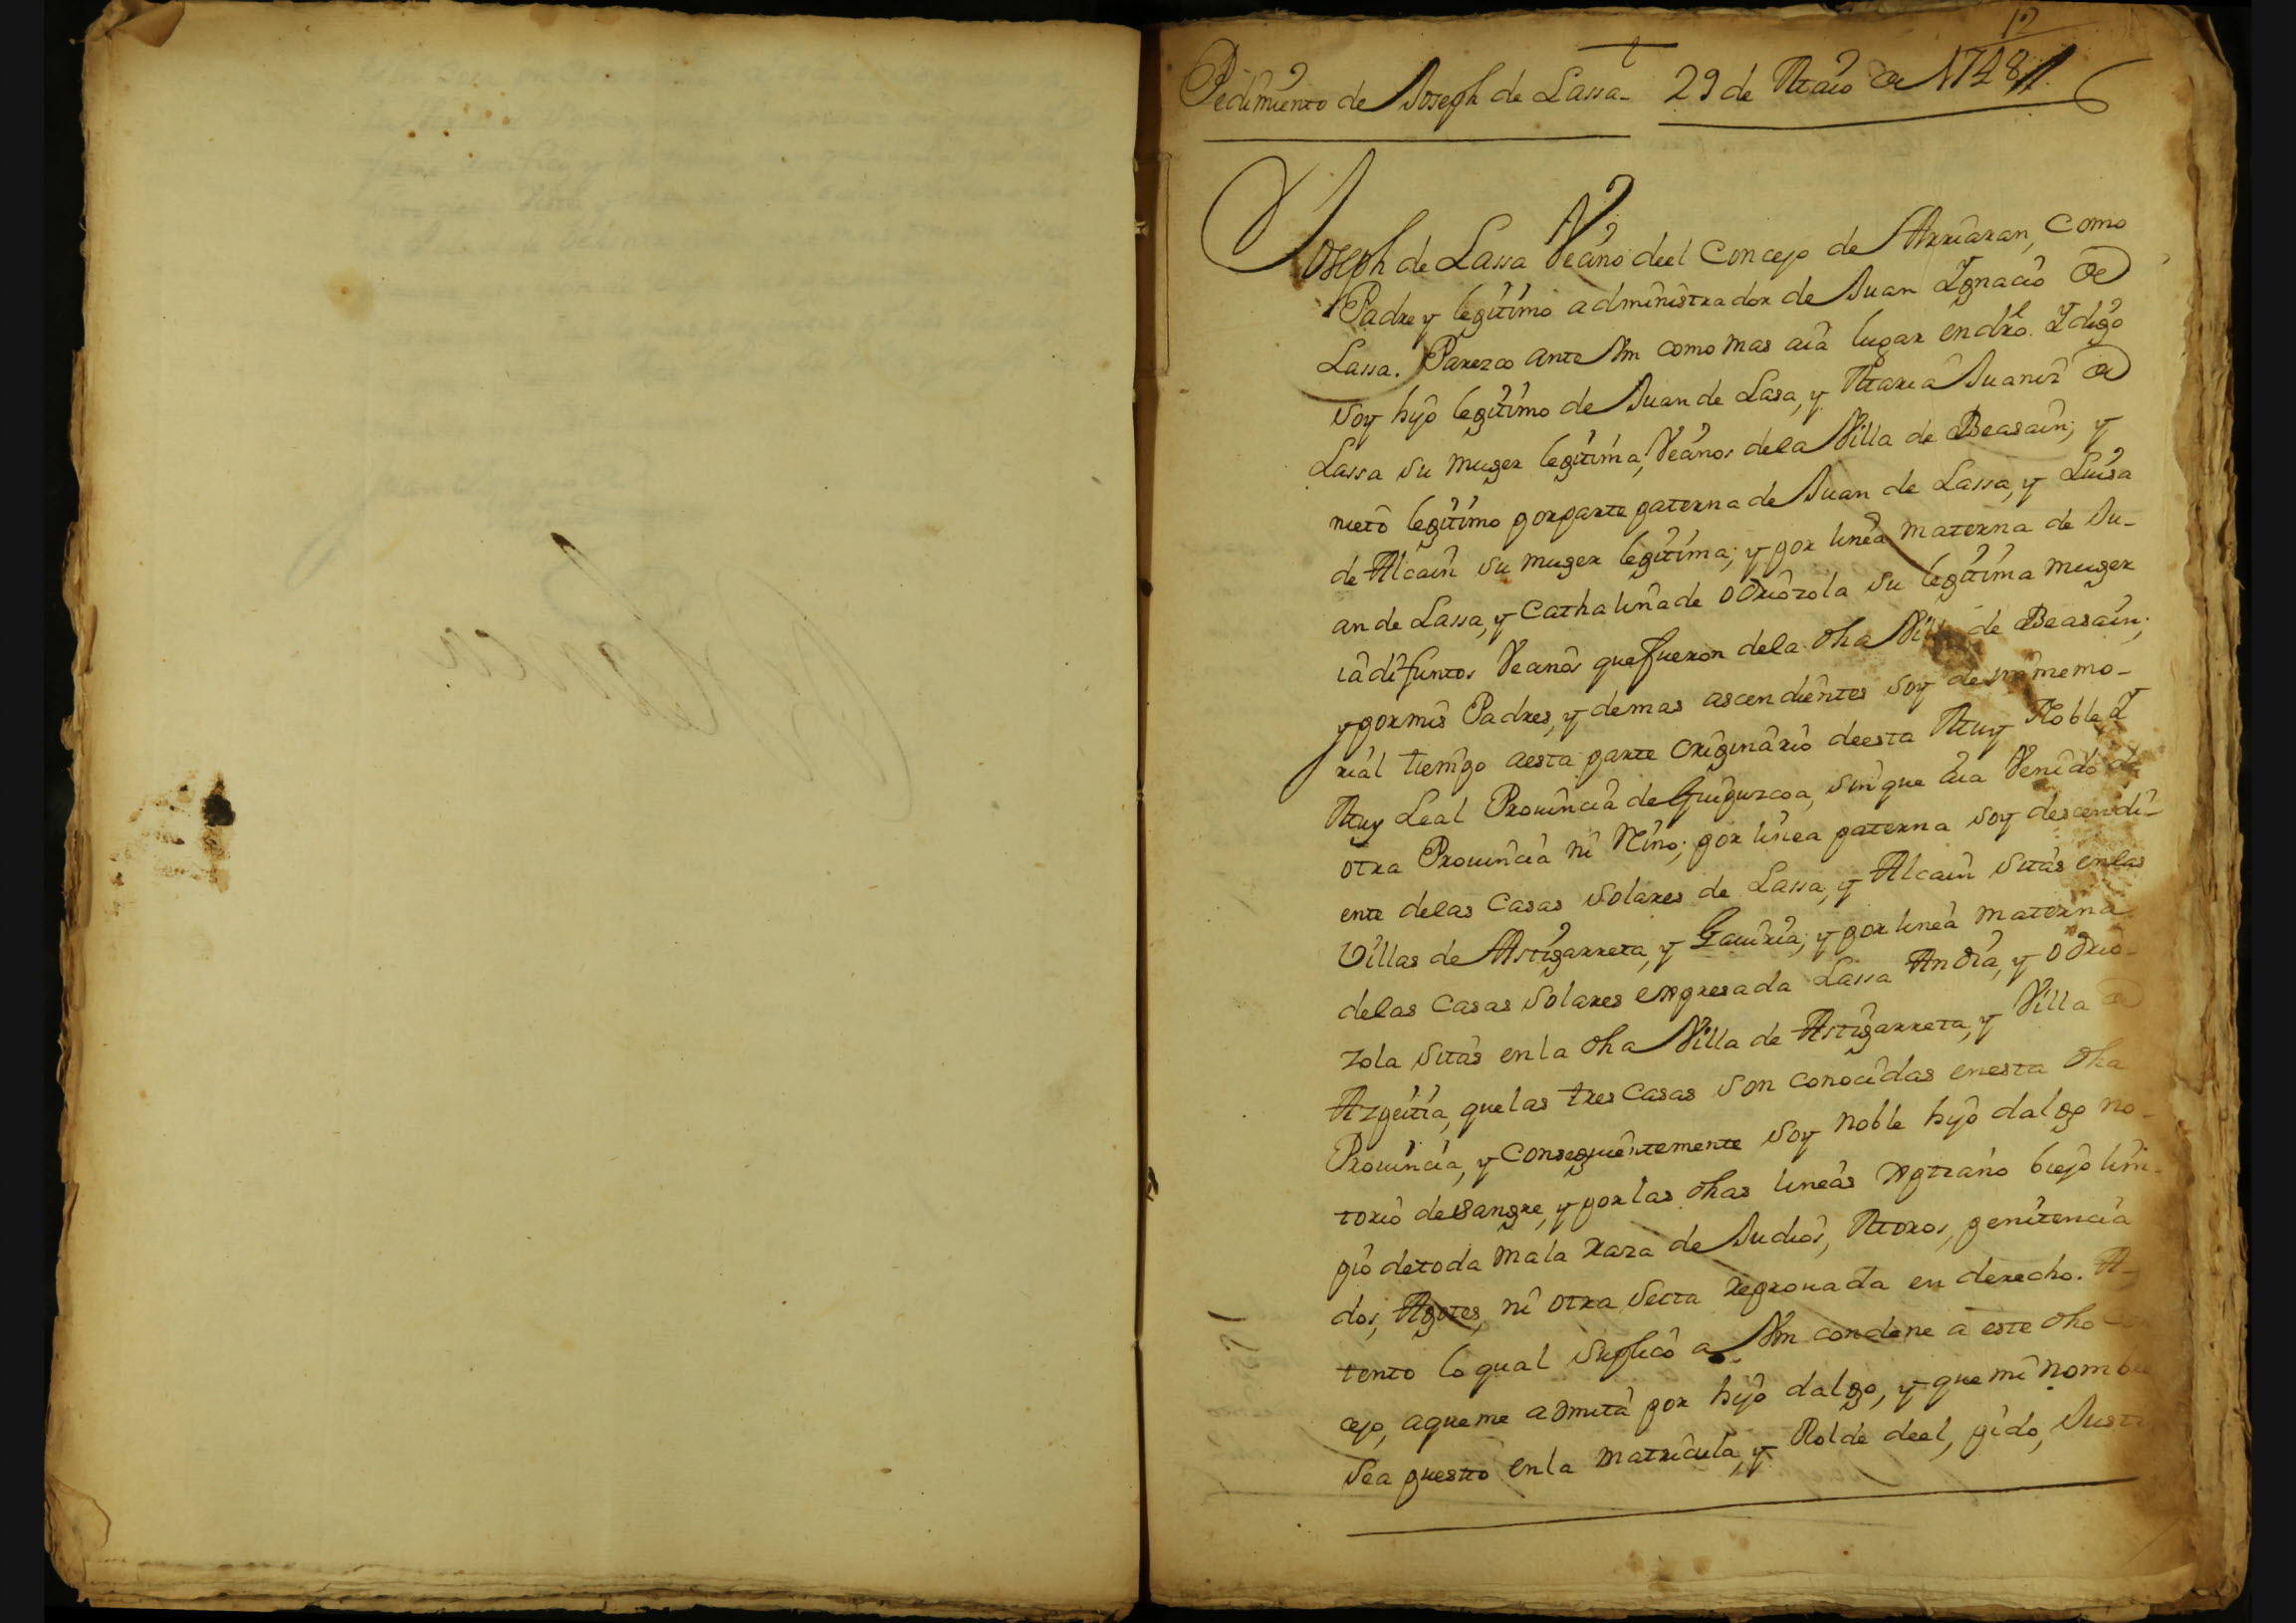 12
Pedimiento de Joseph de Lassa 29 de Maio de 1748
Joseph de Lassa Vecino deel Concejo de Arriaran, como
Padre y legitimo administrador de Juan Ygnacio de
Lassa. Parezco ante Vm como mas aia lugar en dro. Y digo
soy hijo legitimo de Juan de Lasa, y Maria Juaniz de
Lassa su muger legitima, Vecinos dela Villa de Beasain; y
nieto legitimo por parte paterna de Juan de Lassa, y Luisa
de Alcain su muger legitima; y por linea materna de Ju-
an de Lassa, y Cathalina de Odriozola su legitima muger
ia difuntos Vecinos que fueron dela dha Villa de Beasain;
y por mis Padres, y demas ascendientes soy de inmemo-
rial tiempo aesta parte originario deesta Muy Noble Y
Muy Leal Provincia de Guipuzcoa, sin que aia Venido de
otra Provincia ni Reino; por linea paterna soy descendi-
ente delas Casas Solares de Lassa, y Alcain sitas en las
Villas de Astigarreta, y Gaviria; y por linea materna
delas Casas Solares expresada Lassa Andia, y Odrio-
zola sitas en la dha Villa de Astigarreta, y Villa de
Azpeitia, que las tres Casas son conocidas en esta dha
Provincia, y consequentemente soy noble hijo dalgo no-
torio de sangre, y por las dhas lineas Xptiano biejo lim-
pio de toda mala raza de Judios, Moros, penitencia
dos, Agotes, ni otra secta reprouada en derecho. A-
tento lo qual suplico a Vm condene a este dho Con
cejo, aque me admita por hijo dalgo, y que mi nombre
sea puesto en la matricula, y Rolde deel, pido, Justi